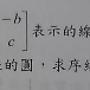 -b
c]表示的線
的圓，求序